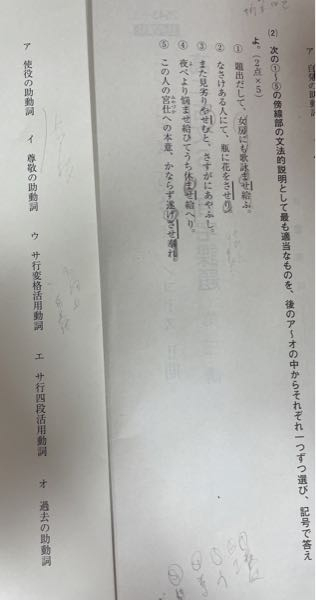 (2) 次の①〜⑤の傍線部の文法的説明として最も適当なものを、後のア〜オの中からそれぞれ一つずつ選び、記号で答え
よ。(2点×5)
① 題出だして、女房にも歌詠ませ給ふ。
② なさけある人にて、瓶に花をさせり。
③ また見劣りやせむと、さすがにあやふし。
④ 夜べより悩ませ給ひてうち休ませ給へり。
⑤ この人の宮仕への本意、かならず遂げさせ奉れ。
みやづか
ア 使役の助動詞 イ 尊敬の助動詞 ウ サ行変格活用動詞 エ サ行四段活用動詞 オ 過去の助動詞